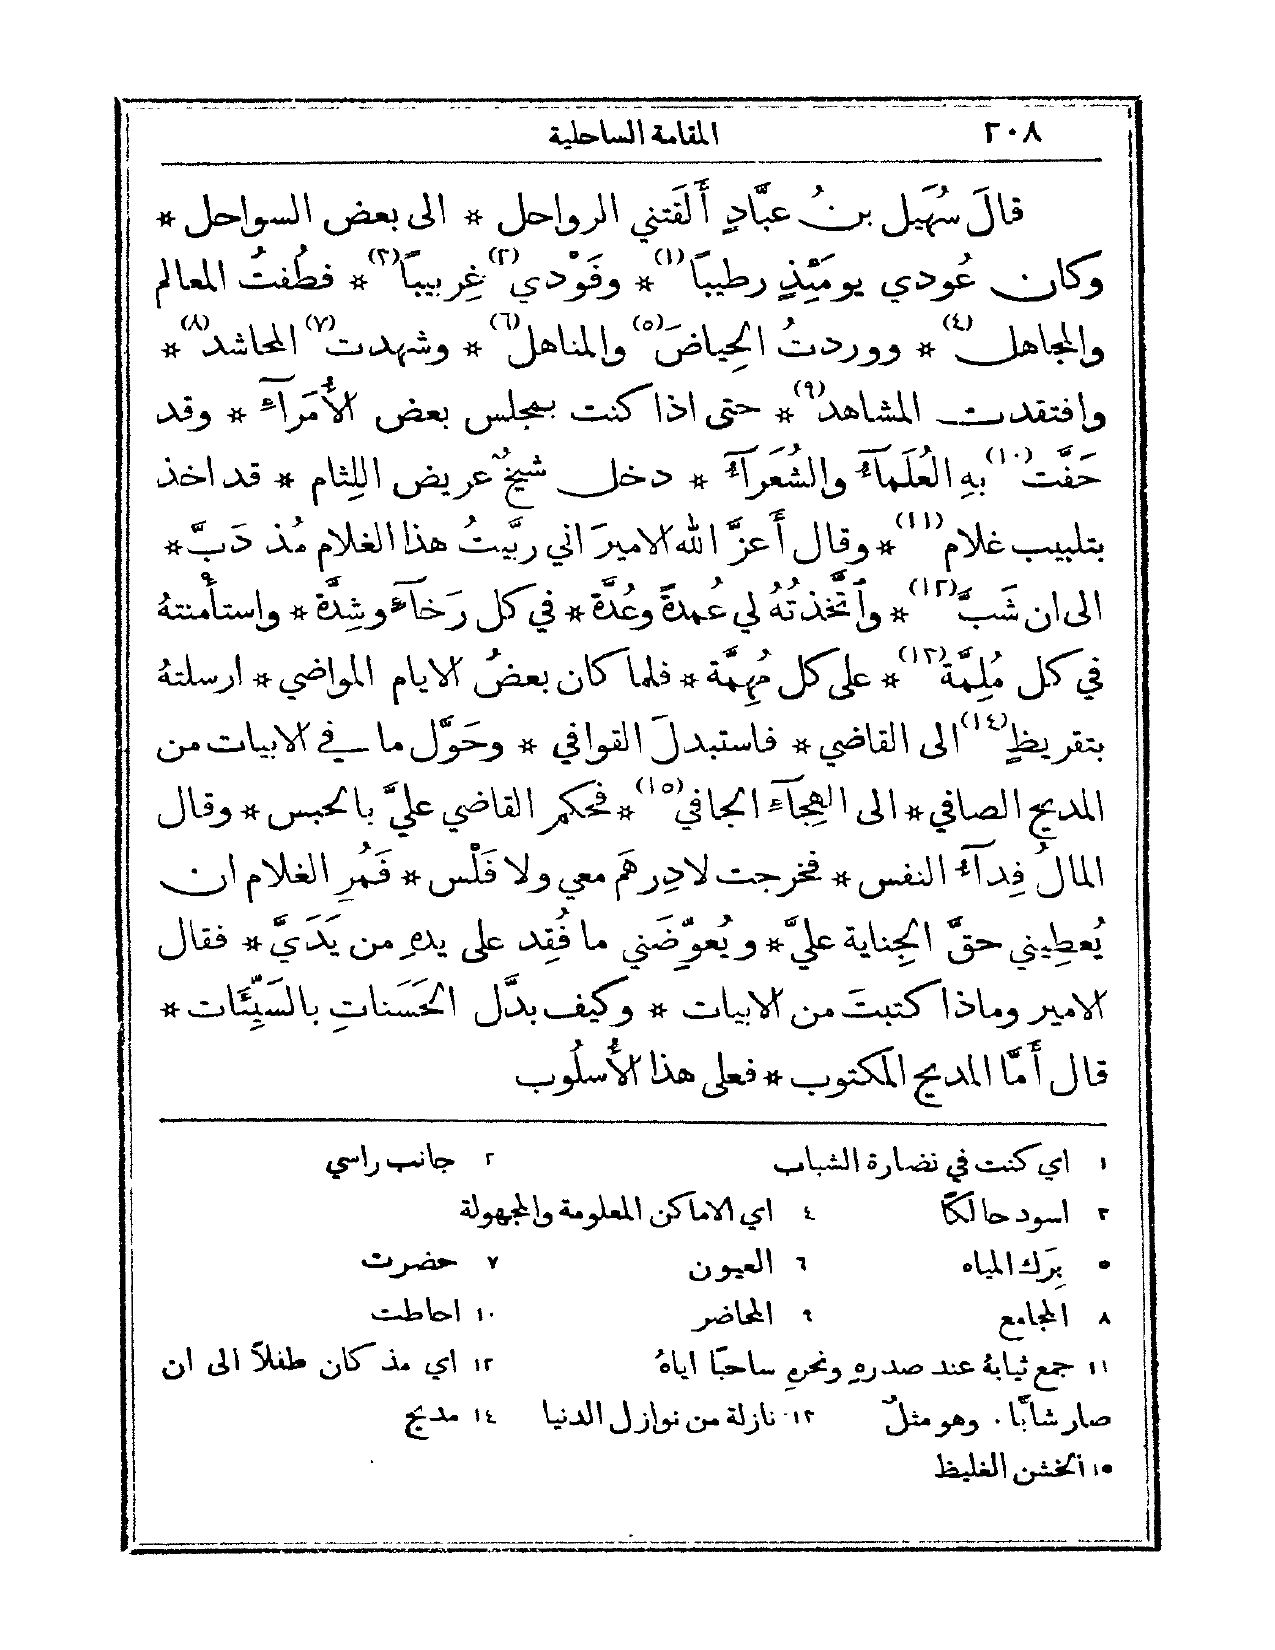 ٢٠٨ المقامة الساحلية
قالَ سُهَيل بنُ عبَّادٍ أَلقَتني الرواحل * الى بعض السواحل *
وكان عُودي يومَئِذٍ رطيبًا(١) * وفَوْدي(٢) غِربيبًا(٣) * فطُفتُ المعالم
والمجاهل(٤) * ووردتُ الحِياضَ(٥) والمناهل(٦) * وشهدت(٧) المحاشد(٨) *
وافتقدت المشاهد(٩) * حتى اذا كنت بمجلس بعض الأُمَرآءِ * وقد
حَفَّت(١٠) بهِ العُلَمآءُ والشُعَرآءُ * دخل شيخٌ عريض اللِثام * قد اخذ
بتلبيب غلام(١١) * وقال أَعزَّ الله الاميرَ اني ربَّيتُ هذا الغلام مُذ دَبَّ *
الى ان شَبَّ(١٢) * وأتَّخذتُهُ لي عُمدةً وعُدَّة * في كل رَخآءٍ وشِدَّة * واستأمنتهُ
في كل مُلِمَّة(١٣) * على كل مُهِمَّة * فلما كان بعضُ الايام المواضي * ارسلتهُ
بتقريظٍ(١٤) الى القاضي * فاستبدلَ القوافي * وحَوَّل ما في الابيات من
المديح الصافي * الى الهِجآء الجافي(١٥) * فحكم القاضي عليَّ بالحبس * وقال
المالُ فِدآءُ النفس * فخرجت لا دِرهَم معي ولا فَلْس * فَمُرِ الغلام ان
يُعطِيني حقَّ الجِناية عليَّ * ويُعوِّضَني ما فُقِد على يدهِ من يَدَيَّ * فقال
الامير وماذا كتبتَ من الابيات * وكيف بدَّل الحَسَناتِ بالسَيِّئَات *
قال أَمَّا المديح المكتوب * فعلى هذا الأُسلُوب
١ اي كنت في نضارة الشباب ٢ جانب راسي
٣ اسود حالكًا ٤ اي الاماكن المعلومة والمجهولة
٥ بِرَك المياه ٦ العيون ٧ حضرت
٨ المجامع ٩ المحاضر ١٠ احاطت
١١ جمع ثيابهُ عند صدرهِ ونحرهِ ساحبًا اياهُ ١٢ اي مذ كان طفلاً الى ان
صار شابًّا. وهو مثلٌ ١٣ نازلة من نوازل الدنيا ١٤ مديح
١٥ الخشن الغليظ